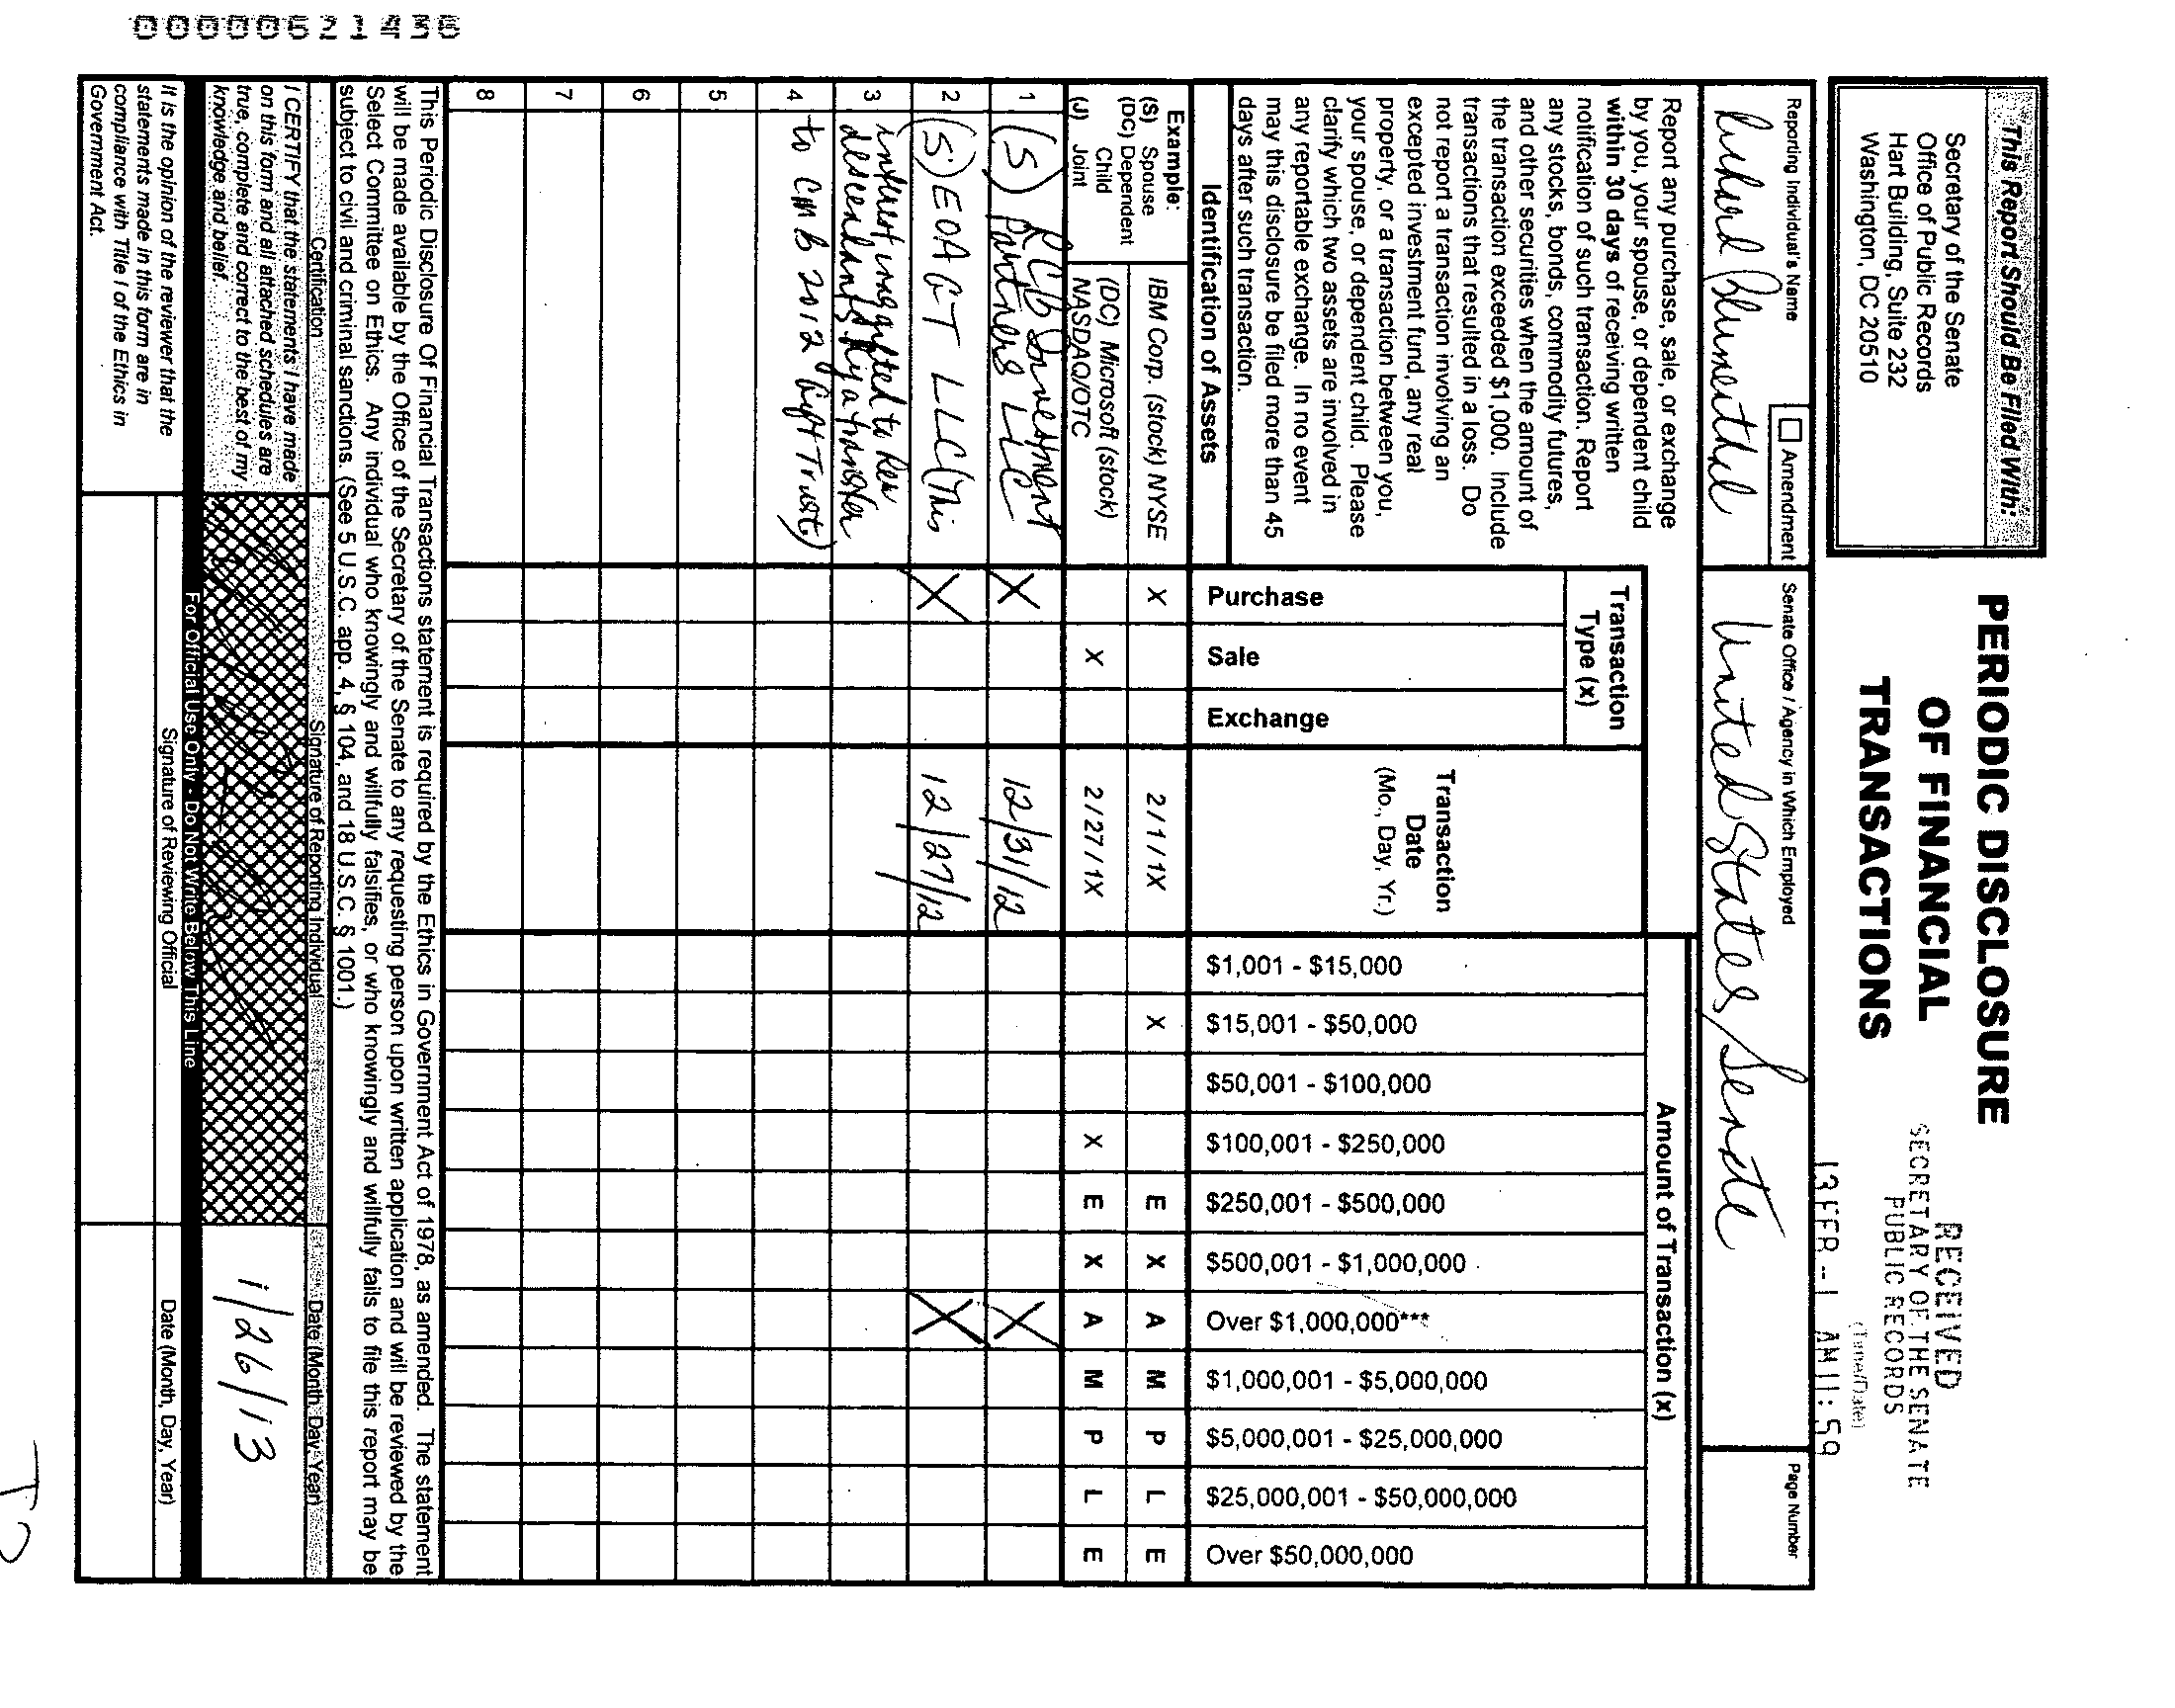 0000062143 6
This Report Should Be Filed With:
Secretary of the Senate
Office of Public Records
Hart Building, Suite 232
Washington, DC 20510
PERIODIC DISCLOSURE
OF FINANCIAL
TRANSACTIONS
RECEIVED
SECRETARY OF THE SENATE
PUBLIC RECORDS
(Time/Date)
13 FEB -1 AM 11:59
Reporting Individual's Name
Richard Blumenthal
Amendment
Senate Office / Agency in Which Employed
United States Senate
Page Number
Report any purchase, sale, or exchange
by you, your spouse, or dependent child
within 30 days of receiving written
notification of such transaction. Report
any stocks, bonds, commodity futures,
and other securities when the amount of
the transaction exceeded $1,000. Include
transactions that resulted in a loss. Do
not report a transaction involving an
excepted investment fund, any real
property, or a transaction between you,
your spouse, or dependent child. Please
clarify which two assets are involved in
any reportable exchange. In no event
may this disclosure be filed more than 45
days after such transaction.
Transaction
Type (x)
Transaction
Date
(Mo., Day, Yr.)
Amount of Transaction (x)
Identification of Assets
Purchase
Sale
Exchange
$1,001 - $15,000
$15,001 - $50,000
$50,001 - $100,000
$100,001 - $250,000
$250,001 - $500,000
$500,001 - $1,000,000
Over $1,000,000***
$1,000,001 - $5,000,000
$5,000,001 - $25,000,000
$25,000,001 - $50,000,000
Over $50,000,000
Example:
(S) Spouse
(DC) Dependent
Child
(J) Joint
IBM Corp. (stock) NYSE X 2/1/1X X E X A M P L E
(DC) Microsoft (stock)
NASDAQ/OTC X 2/27/1X X E X A M P L E
1 (S) RCB Investment
Partners LLC X 12/31/12 X
2 (S) EOA GT LLC (This X 12/27/12 X
interest in a gifted to her
3 descendants by a transfer
4 to CMB 2012 Gift Trust)
5
6
7
8
This Periodic Disclosure Of Financial Transactions statement is required by the Ethics in Government Act of 1978, as amended. The statement
will be made available by the Office of the Secretary of the Senate to any requesting person upon written application and will be reviewed by the
Select Committee on Ethics. Any individual who knowingly and willfully falsifies, or who knowingly and willfully fails to file this report may be
subject to civil and criminal sanctions. (See 5 U.S.C. app. 4, § 104, and 18 U.S.C. § 1001.)
Certification
Signature of Reporting Individual
Date (Month, Day, Year)
I CERTIFY that the statements I have made
on this form and all attached schedules are
true, complete and correct to the best of my
knowledge and belief.
1/26/13
For Official Use Only - Do Not Write Below This Line
It is the opinion of the reviewer that the
statements made in this form are in
compliance with Title I of the Ethics in
Government Act.
Signature of Reviewing Official
Date (Month, Day, Year)